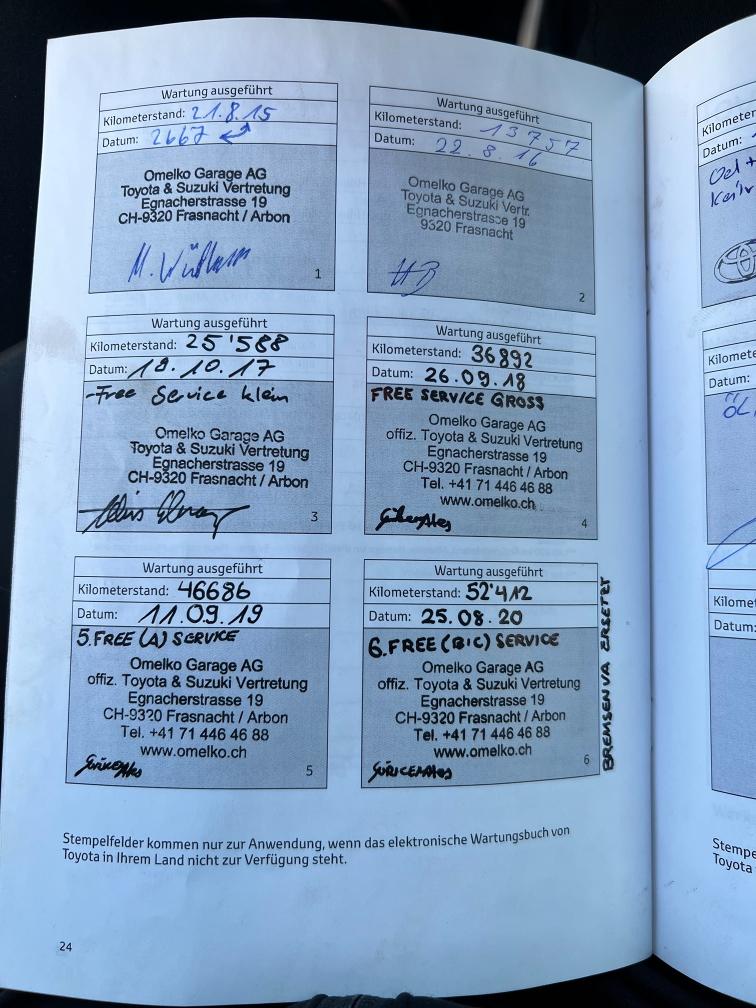 Wartung ausgeführt
Kilometerstand: 21.8.15
Datum: 2667
Omelko Garage AG
Toyota & Suzuki Vertretung
Egnacherstrasse 19
CH-9320 Frasnacht / Arbon
1
Wartung ausgeführt
Kilometerstand: 13757
Datum: 22.8.16
Omelko Garage AG
Toyota & Suzuki Vertr.
Egnacherstrasse 19
9320 Frasnacht
2
Wartung ausgeführt
Kilometerstand: 25'588
Datum: 19.10.17
-Free Service klein
Omelko Garage AG
Toyota & Suzuki Vertretung
Egnacherstrasse 19
CH-9320 Frasnacht / Arbon
3
Wartung ausgeführt
Kilometerstand: 36892
Datum: 26.09.18
FREE SERVICE GROSS
Omelko Garage AG
offiz. Toyota & Suzuki Vertretung
Egnacherstrasse 19
CH-9320 Frasnacht / Arbon
Tel. +41 71 446 46 88
www.omelko.ch
4
Wartung ausgeführt
Kilometerstand: 46686
Datum: 11.09.19
5.FREE (A) SERVICE
Omelko Garage AG
offiz. Toyota & Suzuki Vertretung
Egnacherstrasse 19
CH-9320 Frasnacht / Arbon
Tel. +41 71 446 46 88
www.omelko.ch
5
Wartung ausgeführt
Kilometerstand: 52'412
Datum: 25.08.20
6.FREE (BIC) SERVICE
Omelko Garage AG
offiz. Toyota & Suzuki Vertretung
Egnacherstrasse 19
CH-9320 Frasnacht / Arbon
Tel. +41 71 446 46 88
www.omelko.ch
6
BREMSEN VA ERSETZT
Stempelfelder kommen nur zur Anwendung, wenn das elektronische Wartungsbuch von
Toyota in Ihrem Land nicht zur Verfügung steht.
24
Datum:
Oel +
Datum:
Datum:
Toyota